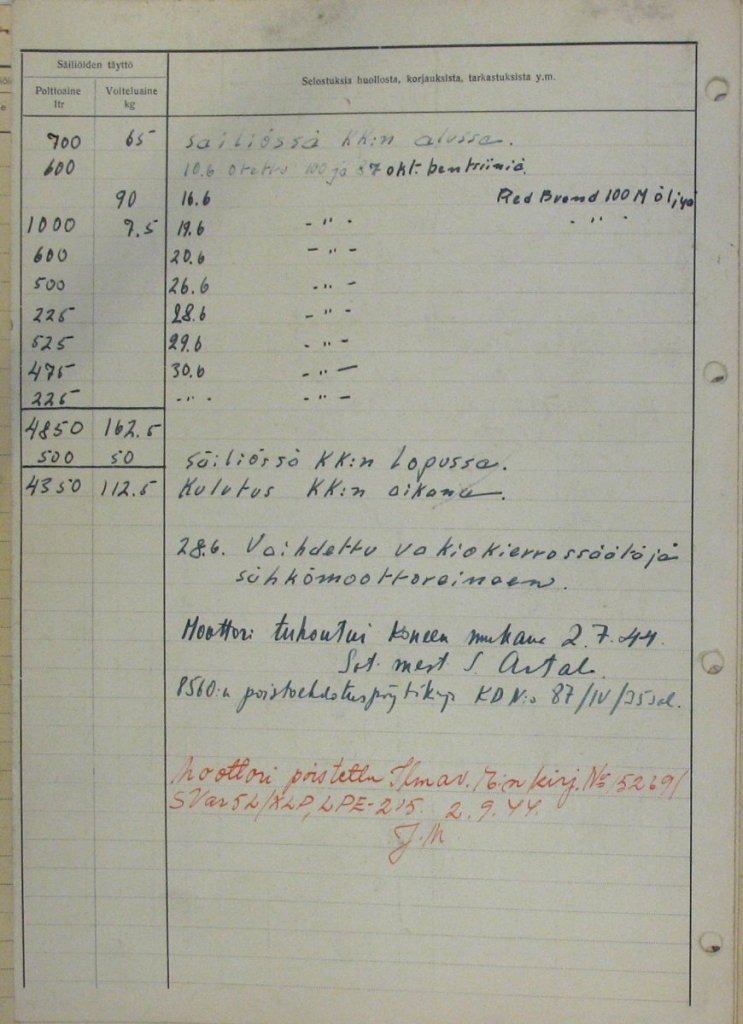 Säiliöiden täyttö
Polttoaine ltr
Voiteluaine kg
Selostuksia huollosta, korjauksista, tarkastuksista y.m.
700 65 säiliössä KK:n alussa.
600 10.6 otettu 100 ja 87 okt. bentsiiniä.
90 16.6 Red Brand 100 M öljyä
1000 7.5 19.6 - " - - " -
600 20.6 - " -
500 26.6 - " -
225 28.6 - " -
525 29.6 - " -
475 30.6 - " -
225 - " - - " -
4850 162.5
500 50 säiliössä KK:n lopussa.
4350 112.5 Kulutus KK:n aikana.
28.6. Vaihdettu vakiokierrossäätäjä
sähkömoottoreineen.
Moottori tuhoutui koneen mukana 2.7.44.
Sot. mest. S.
8560:n poistoehdotuspöytäkirja KD N:o 87/IV/35 sal.
Moottori poistettu Ilmav. E:n kirj. No 5269/
SVar5L/XLP, LPE-215. 2.9.44.
J.M